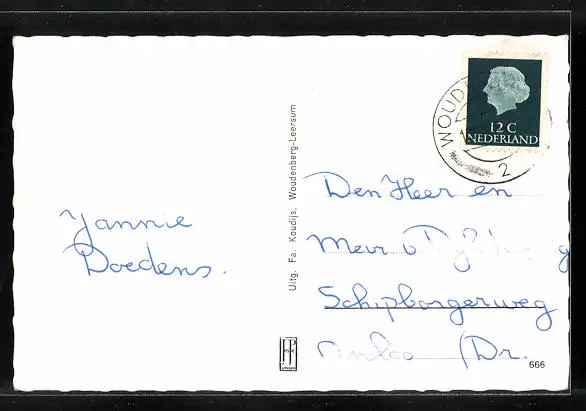 WOUD
2
12 C
NEDERLAND
Den Heer en
Jannie
Doedens.
Mevr v
Schipborgerweg
(Dr.
Uitg. Fa. Kaudijs, Woudenberg-Leersum
666